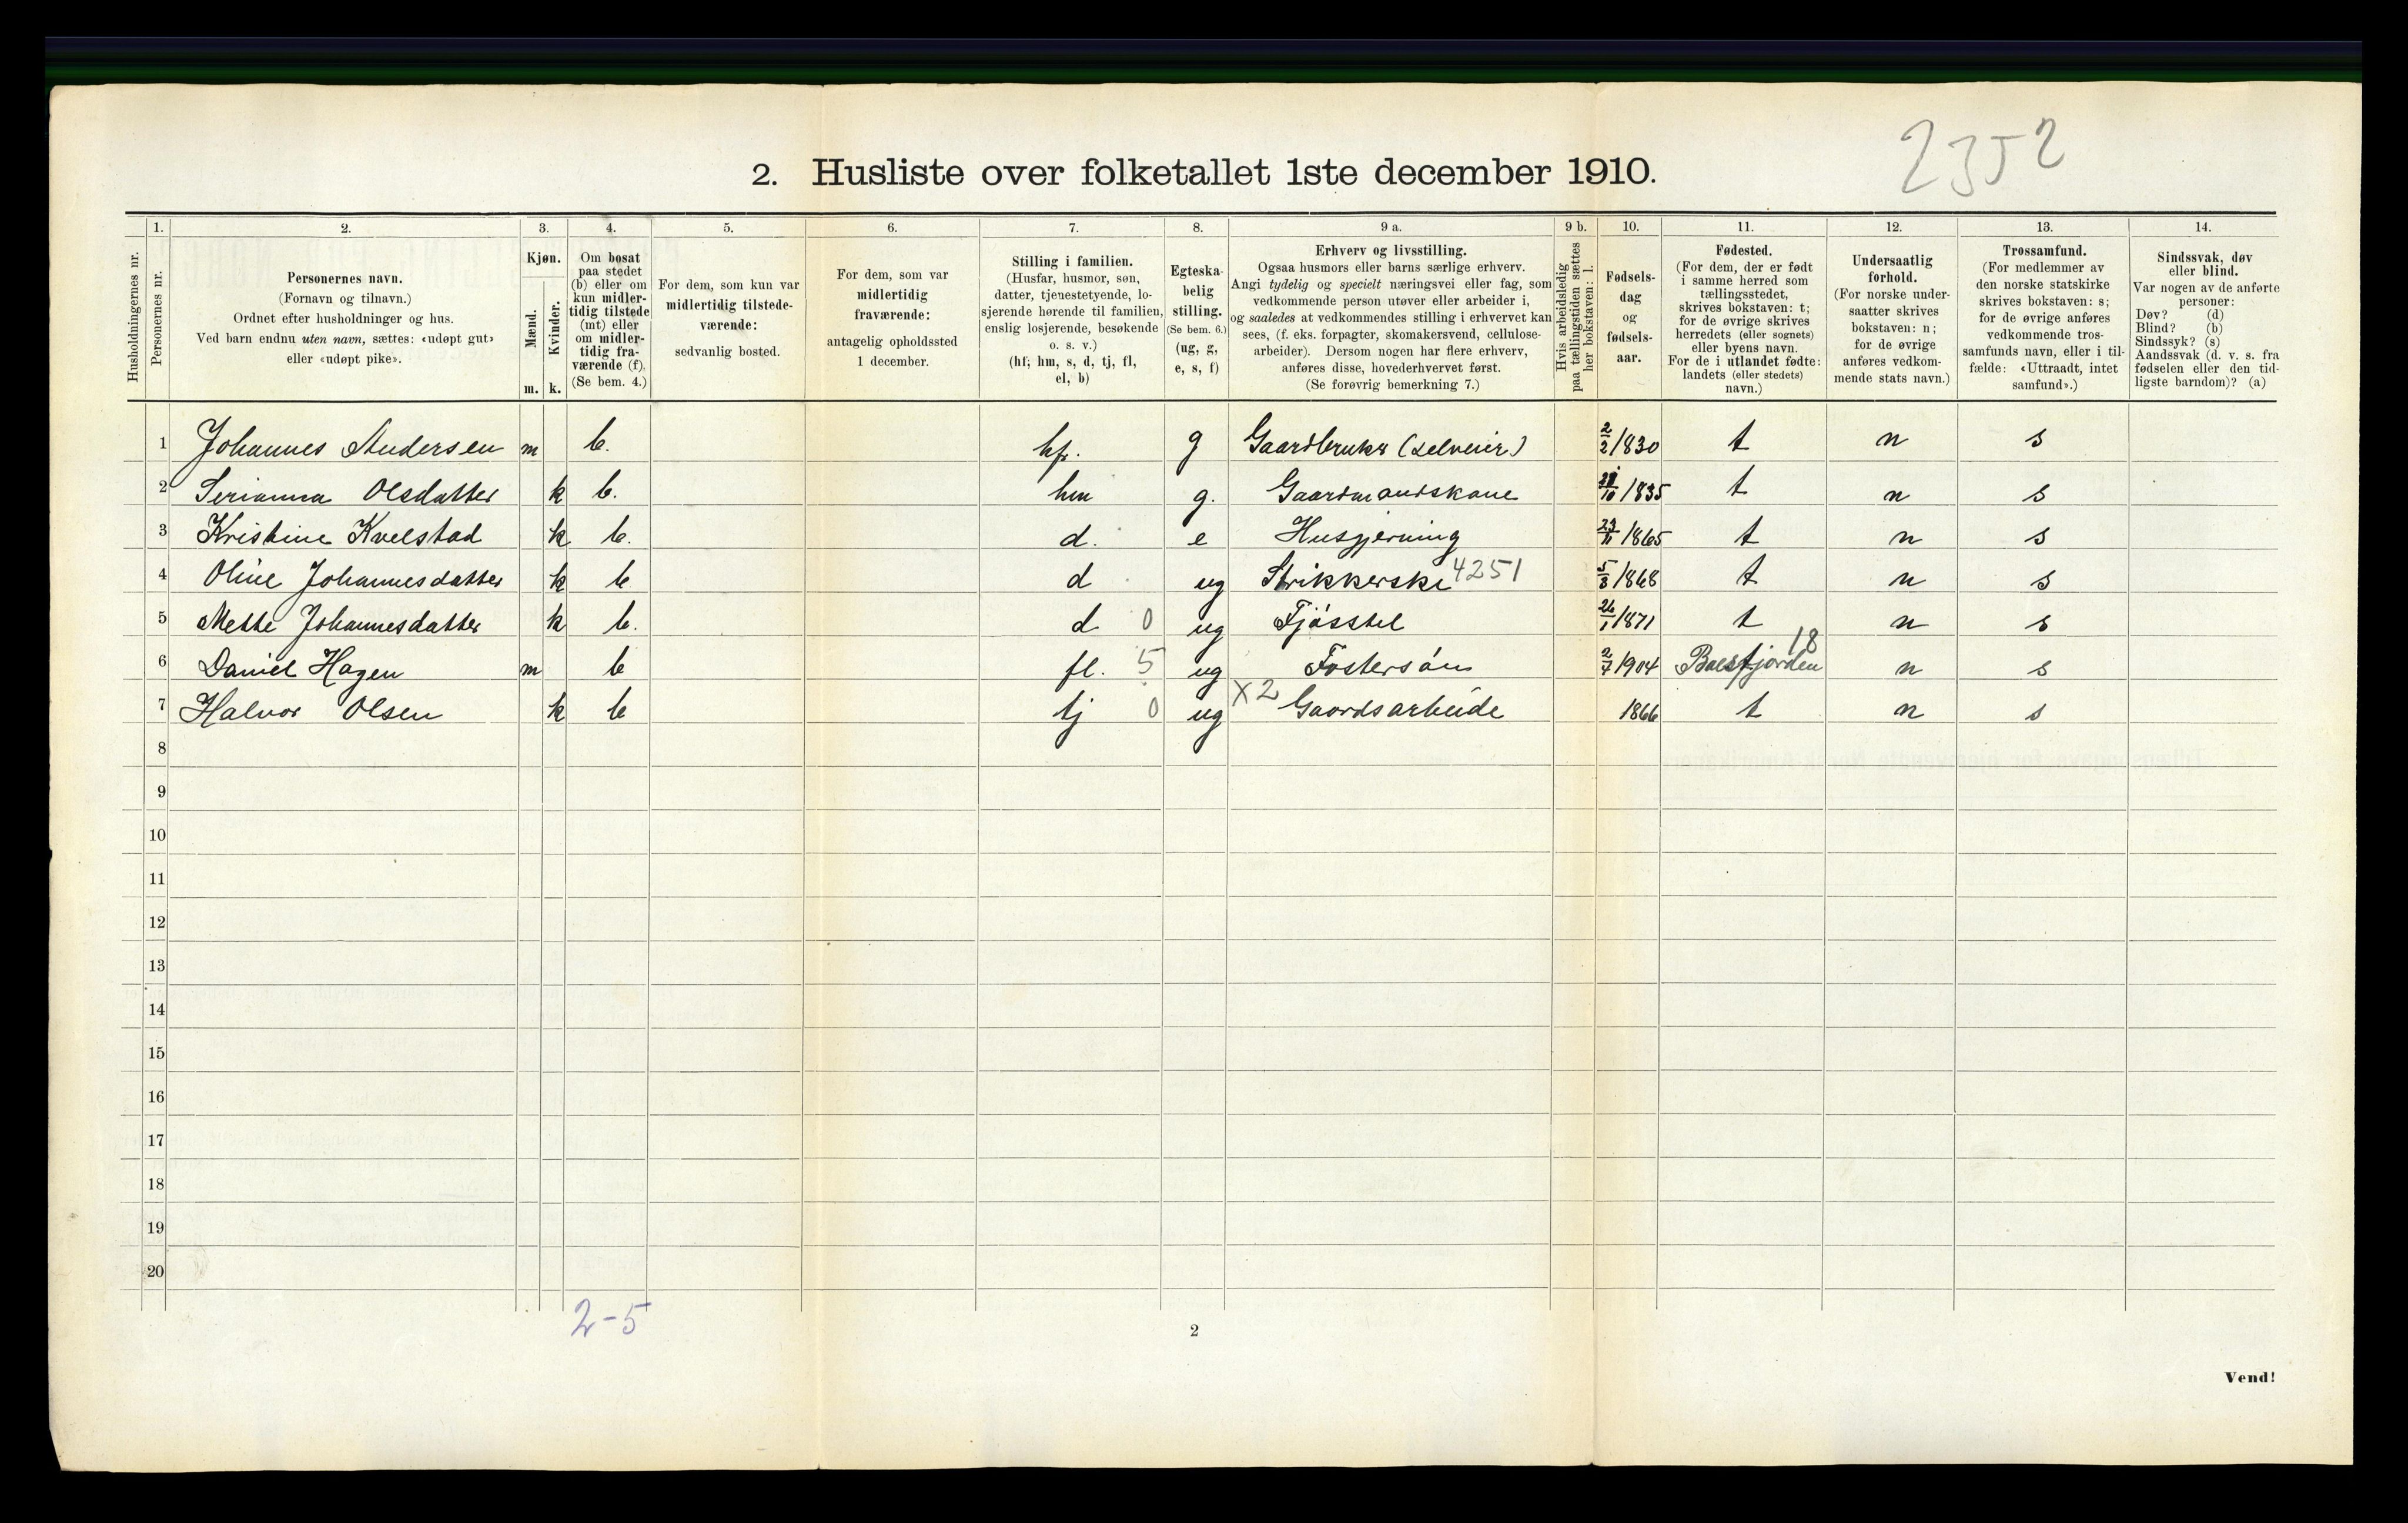 2352
2. Husliste over folketallet 1ste december 1910.
Husholdningernes nr.
1. Personernes nr.
2. Personernes navn.
(Fornavn og tilnavn.)
Ordnet efter husholdninger og hus.
Ved barn endnu uten navn, sættes: «udøpt gut»
eller «udøpt pike».
3. Kjøn.
Mænd. m.
Kvinder. k.
4. Om bosat
paa stedet
(b) eller om
kun midler-
tidig tilstede
(mt) eller
om midler-
tidig fra-
værende (f).
(Se bem. 4.)
5. For dem, som kun var
midlertidig tilstede-
værende:
sedvanlig bosted.
6. For dem, som var
midlertidig
fraværende:
antagelig opholdssted
1 december.
7. Stilling i familien.
(Husfar, husmor, søn,
datter, tjenestetyende, lo-
sjerende hørende til familien,
enslig losjerende, besøkende
o. s. v.)
(hf, hm, s, d, tj, fl,
el, b)
8. Egteska-
belig
stilling.
(Se bem. 6.)
(ug, g,
e, s, f)
9 a. Erhverv og livsstilling.
Ogsaa husmors eller barns særlige erhverv.
Angi tydelig og specielt næringsvei eller fag, som
vedkommende person utøver eller arbeider i,
og saaledes at vedkommendes stilling i erhvervet kan
sees, (f. eks. forpagter, skomakersvend, cellulose-
arbeider). Dersom nogen har flere erhverv,
anføres disse, hovederhvervet først.
(Se forøvrig bemerkning 7.)
9 b. Hvis arbeidsledig
paa tællingstiden sættes
her bokstaven: l.
10. Fødsels-
dag
og
fødsels-
aar.
11. Fødested.
(For dem, der er født
i samme herred som
tællingsstedet,
skrives bokstaven: t;
for de øvrige skrives
herredets (eller sognets)
eller byens navn.
For de i utlandet fødte:
landets (eller stedets)
navn.)
12. Undersaatlig
forhold.
(For norske under-
saatter skrives
bokstaven: n;
for de øvrige
anføres vedkom-
mende stats navn.)
13. Trossamfund.
(For medlemmer av
den norske statskirke
skrives bokstaven: s;
for de øvrige anføres
vedkommende tros-
samfunds navn, eller i til-
fælde: «Uttraadt, intet
samfund».)
14. Sindssvak, døv
eller blind.
Var nogen av de anførte
personer:
Døv? (d)
Blind? (b)
Sindssyk? (s)
Aandssvak (d. v. s. fra
fødselen eller den tid-
ligste barndom)? (a)
1 Johannes Andersen m b. hf. g Gaardbruker (selveier) 2/2 1830 t n s
2 Serianna Olsdatter k b. hm g. Gaardmandskone /10 1835 t n s
3 Kristine Kvelstad k b. d. e Husgjerning 23/11 1865 t n s
4 Oline Johannesdatter k b d ug Strikkerske 4251 5/8 1868 t n s
5 Mette Johannesdatter k b. d 0 ug Fjøsstel 26/1 1871 t n s
6 Daniel Hagen m b fl. 5 ug Fostersøn 2/7 1904 18 n s
7 Halvor Olsen k b tj 0 ug x2 Gaardsarbeide 1866 t n s
8
9
10
11
12
13
14
15
16
17
18
19
20
2-5
2
Vend!